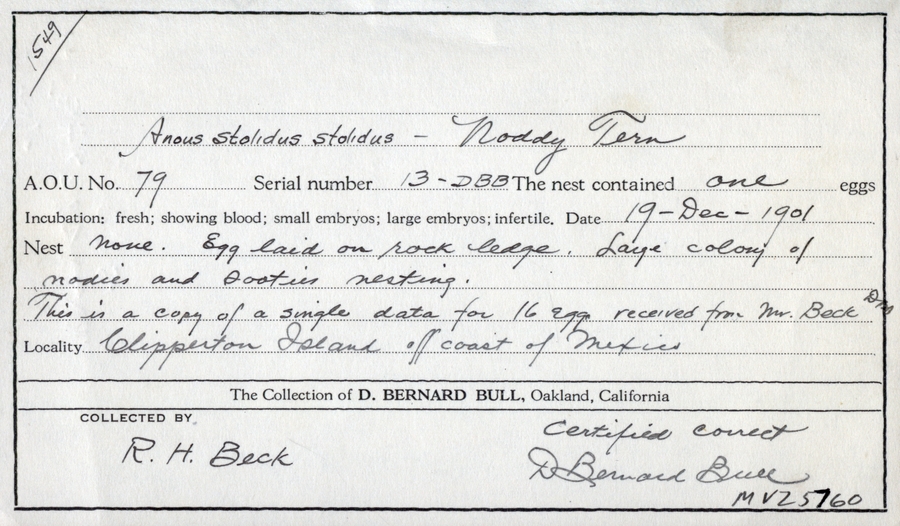 1549
Anous stolidus stolidus - Noddy Tern
A.O.U. No. 79 Serial number 13-DBB The nest contained one eggs
Incubation: fresh; showing blood; small embryos; large embryos; infertile. Date 19-Dec-1901
Nest None. Egg laid on rock ledge. Large colony of
nodies and sooties nesting.
This is a copy of a single data for 16 eggs received from Mr. Beck
Locality Clipperton Island off coast of Mexico
The Collection of D. BERNARD BULL, Oakland, California
COLLECTED BY
R. H. Beck
Certified correct
D Bernard Bull
MVZ 5760